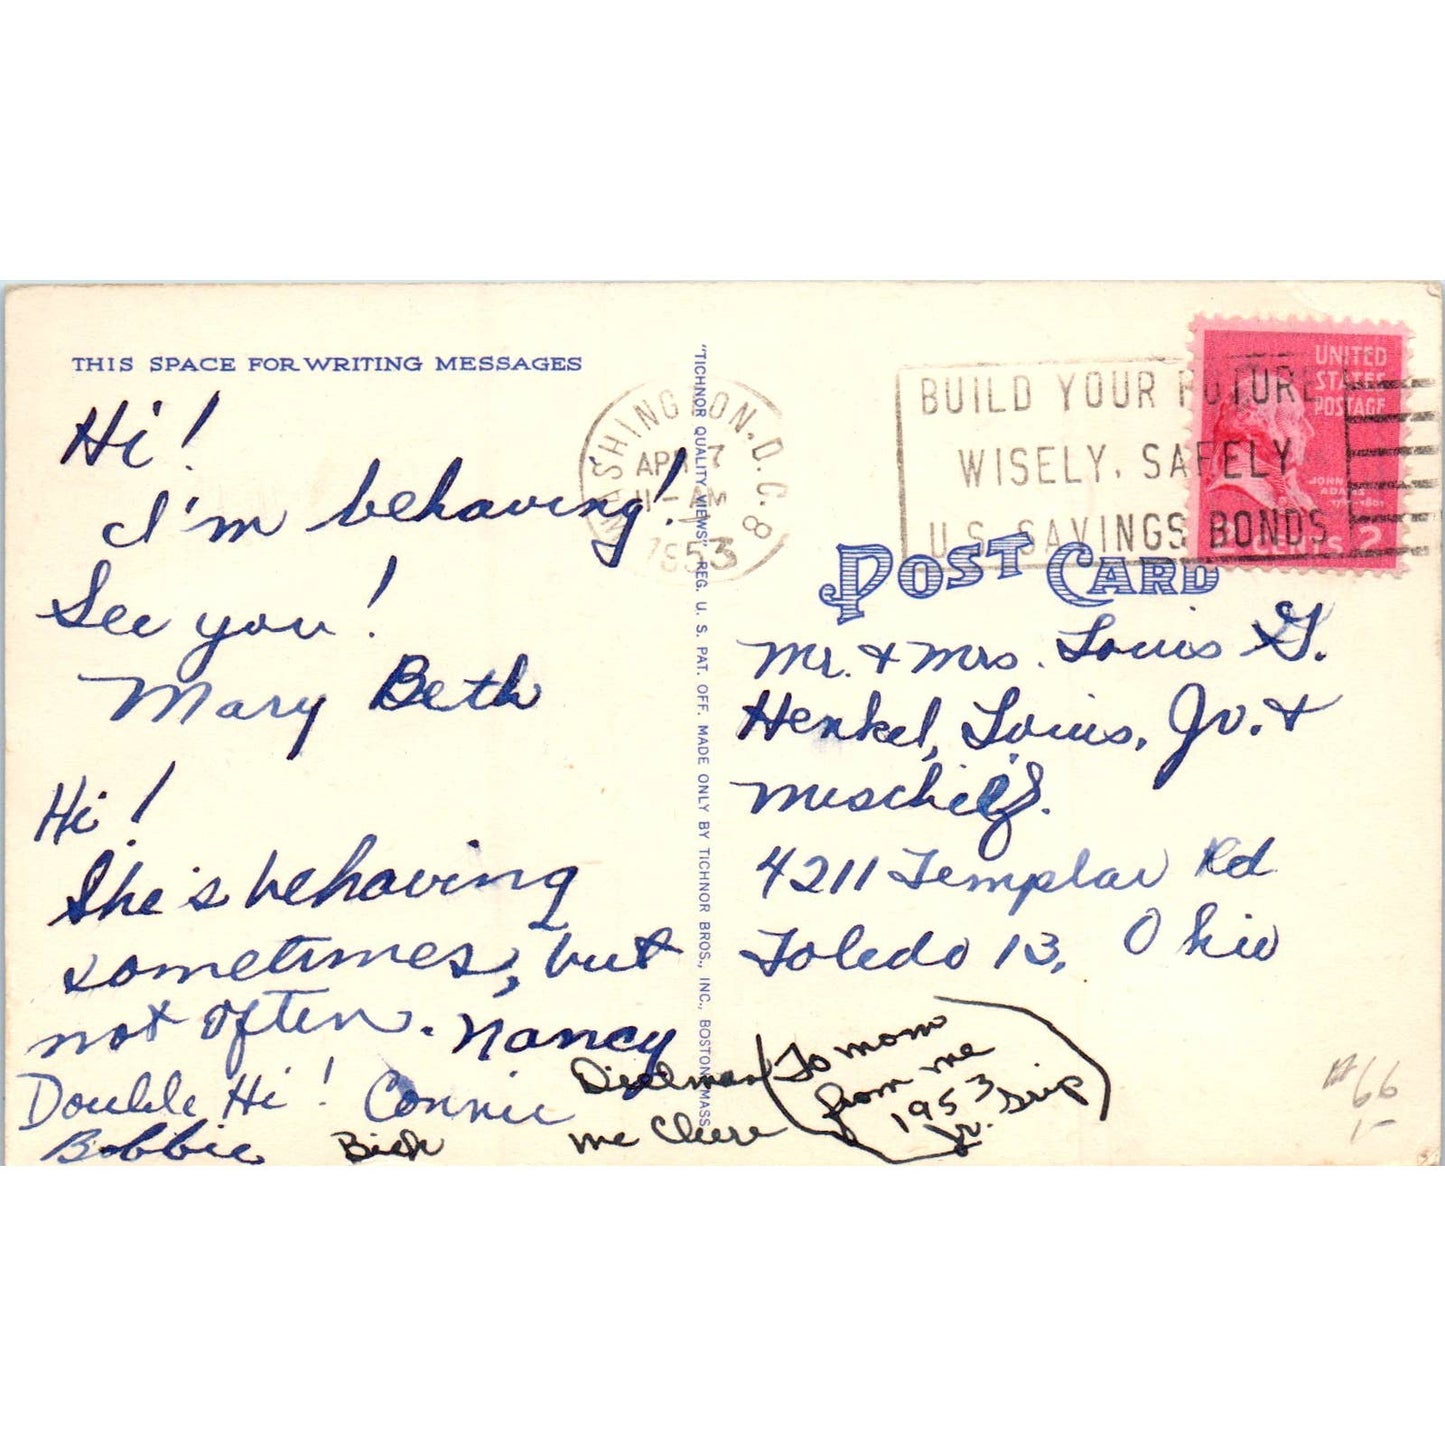 THIS SPACE FOR WRITING MESSAGES
Hi!
I'm behaving!
See you!
Mary Beth
Hi!
She's behaving
sometimes, but
not often. Nancy
Double Hi! Connie
Bobbie
Mc Clure
"TICHNOR QUALITY VIEWS" REG. U. S. PAT. OFF. MADE ONLY BY TICHNOR BROS., INC., BOSTON, MASS.
WASHINGTON, D.C. 8
APR 7
11-AM
1953
BUILD YOUR FUTURE
WISELY, SAFELY
U.S. SAVINGS BONDS
UNITED
STATES
POSTAGE
JOHN
ADAMS
2
POST CARD
Mr. + Mrs. Louis G.
Henkel, Louis, Jr. +
Mischief.
4211 Templar Rd
Toledo 13, Ohio
To mom
from me
1953
Jr. Trip
#66
1-